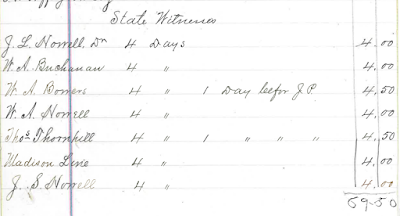 State Witnesses
J. L. Norrell Dr 4 Days 4.00
W. A. Buchanan 4 " 4.00
W A Bowers 4 " 1 Day befor J P. 4.50
W. A. Norrell 4 " 4.00
Thos Thornhill 4 " 1 " " " 4.50
Madison Line 4 " 4.00
J. S. Norrell 4 " 4.00
59.50